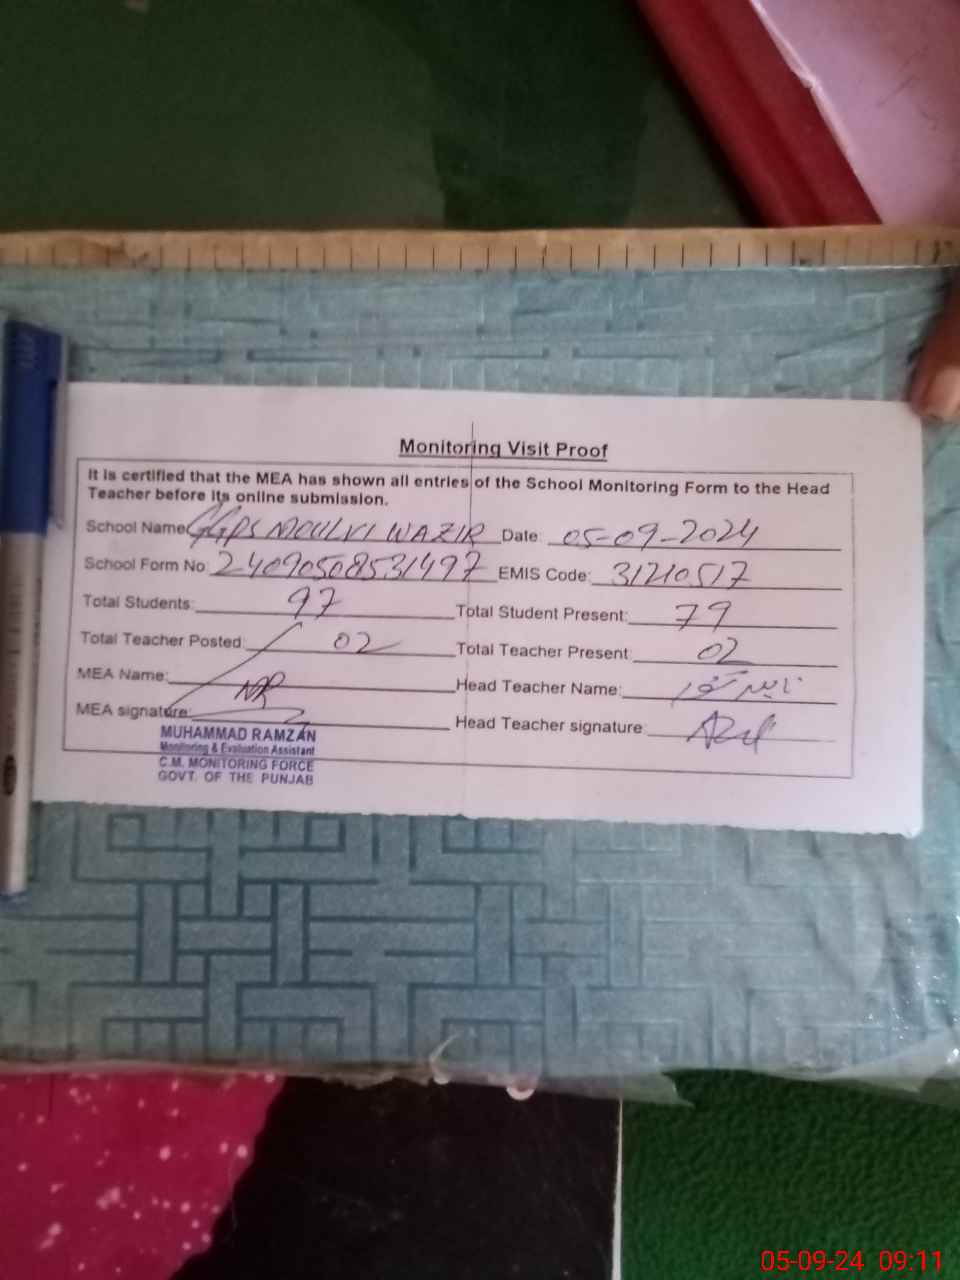 Monitoring Visit Proof
It is certified that the MEA has shown all entries of the School Monitoring Form to the Head
Teacher before its online submission.
School Name: GGPS MOULVI WAZIR Date: 05-09-2024
School Form No 24090508531497 EMIS Code: 31210517
Total Students: 97 Total Student Present: 79
Total Teacher Posted: 02 Total Teacher Present: 02
MEA Name: Head Teacher Name:
MEA signature: Head Teacher signature:
MUHAMMAD RAMZAN
Monitoring & Evaluation Assistant
C.M. MONITORING FORCE
GOVT. OF THE PUNJAB
05-09-24 09:11